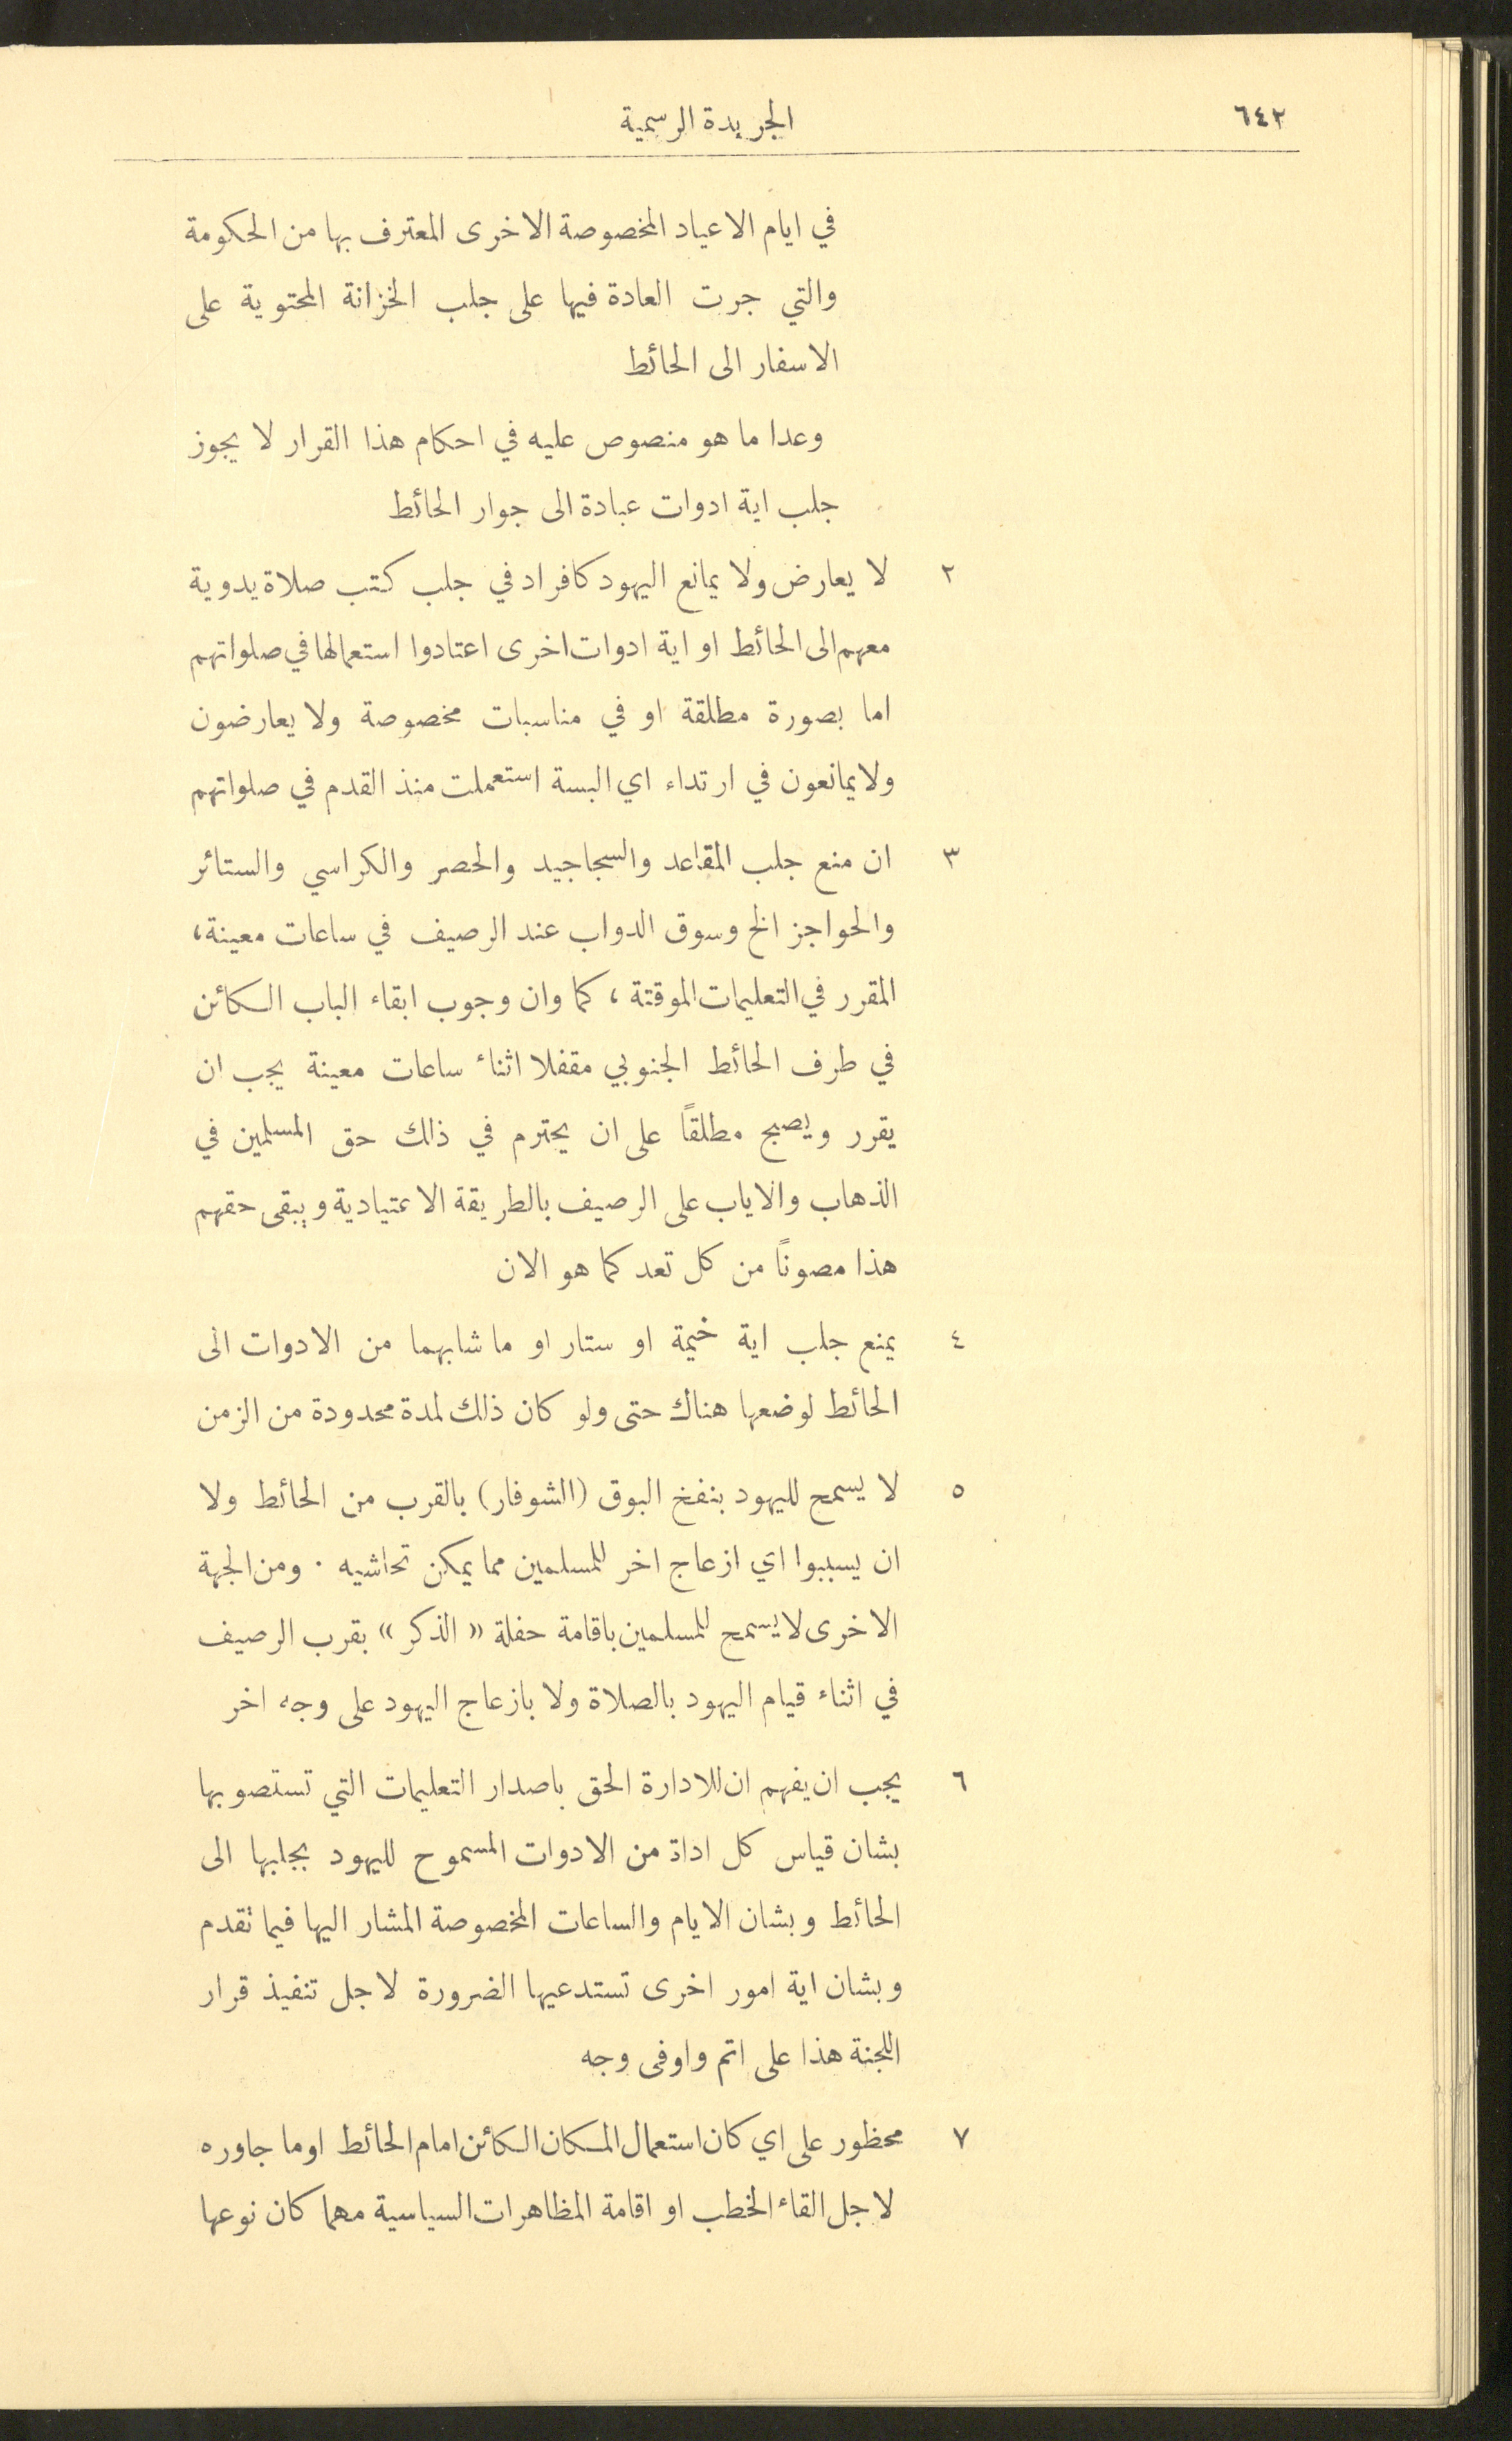 ٦٤٢
الجريدة الرسمية
في ايام الاعياد المخصوصة الاخرى المعترف بها من الحكومة
والتي جرت العادة فيها على جلب الخزانة المحتوية على
الاسفار الى الحائط
وعدا ما هو منصوص عليه في احكام هذا القرار لا يجوز
جلب اية ادوات عبادة الى جوار الحائط
٢ لا يعارض ولا يمانع اليهود كافراد في جلب كتب صلاة يدوية
معهم الى الحائط او اية ادوات اخرى اعتادوا استعمالها في صلواتهم
اما بصورة مطلقة او في مناسبات مخصوصة ولا يعارضون
ولا يمانعون في ارتداء اي البسة استعملت منذ القدم في صلواتهم
٣ ان منع جلب المقاعد والسجاجيد والحصر والكراسي والستائر
والحواجز الخ وسوق الدواب عند الرصيف في ساعات معينة،
المقرر في التعليمات الموقتة، كما وان وجوب ابقاء الباب الكائن
في طرف الحائط الجنوبي مقفلا اثناء ساعات معينة يجب ان
يقرر ويصبح مطلقاً على ان يحترم في ذالك حق المسلمين في
الذهاب والاياب على الرصيف بالطريقة الاعتيادية ويبقى حقهم
هذا مصوناً من كل تعد كما هو الان
٤ يمنع جلب اية خيمة او ستار او ما شابهما من الادوات الى
الحائط لوضعها هناك حتى ولو كان ذلك لمدة محدودة من الزمن
٥ لا يسمح لليهود بنفخ البوق (الشوفار) بالقرب من الحائط ولا
ان يسببوا اي ازعاج اخر للمسلمين مما يمكن تحاشيه . ومن الجهة
الاخرى لا يسمح للمسلمين باقامة حفلة « الذكر » بقرب الرصيف
في اثناء قيام اليهود بالصلاة ولا بازعاج اليهود على وجه اخر
٦ يجب ان يفهم ان للادارة الحق باصدار التعليمات التي تستصوبها
بشان قياس كل اداة من الادوات المسموح لليهود بجلبها الى
الحائط وبشان الايام والساعات المخصوصة المشار اليها فيما تقدم
وبشان اية امور اخرى تستدعيها الضرورة لاجل تنفيذ قرار
اللجنة هذا على اتم واوفى وجه
٧ محظور على اي كان استعمال المكان الكائن امام الحائط او ما جاوره
لاجل القاء الخطب او اقامة المظاهرات السياسية مهما كان نوعها